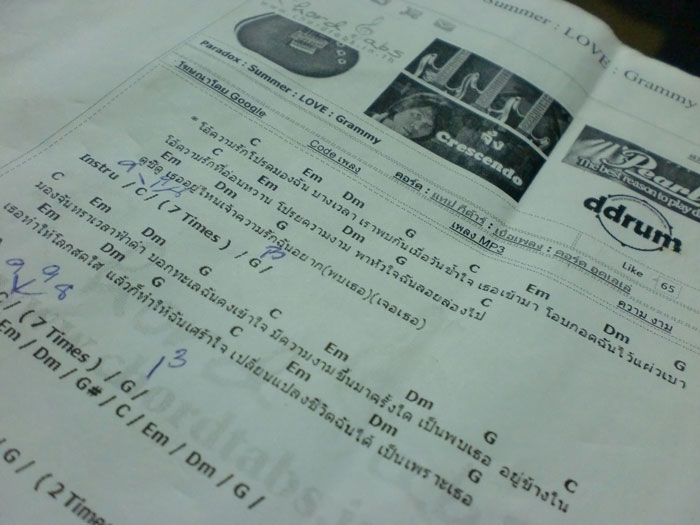 Summer : LOVE : Grammy
chord tabs
Paradox : Summer : LOVE : Grammy
จุ๋ง
Crescendo
Pearl
The best reason to play
ddrum
Like 65
โฆษณาโดย Google Code เพลง คอร์ด : แทป กีต้าร์ : เนื้อเพลง : คอร์ด อูคูเลเล่
เพลง MP3 ความ งาม
C Em Dm G C Em Dm G
* โอ้ความรักโปรดมองฉัน บางเวลา เราพบกันเมื่อวันช้ำใจ เธอเข้ามา โอบกอดฉันไว้แผ่วเบา
Em Dm G C
โอ้ความรักที่อ่อนหวาน โปรยความงาม พาหัวใจฉันลอยล่องไป
Em Dm G
ดูซิดู เธออยู่ไหนเจ้าความรักฉันอยาก(พบเธอ)(เจอเธอ)
Instru / C / ( 7 Times ) / G /
C Em Dm G C Em Dm G C
มองจันทราเวลาฟ้าค่ำ บอกทะเลฉันคงเข้าใจ มีความงามขึ้นมาครั้งใด เป็นพบเธอ อยู่ข้างใน
Em Dm G C Em Dm G
เธอทำให้โลกสดใส แล้วก็ทำให้ฉันเศร้าใจ เปลี่ยนแปลงชีวิตฉันได้ เป็นเพราะเธอ
G / ( 7 Times ) / G /
13
Em / Dm / G# / C / Em / Dm / G /
/ G / ( 2 Times